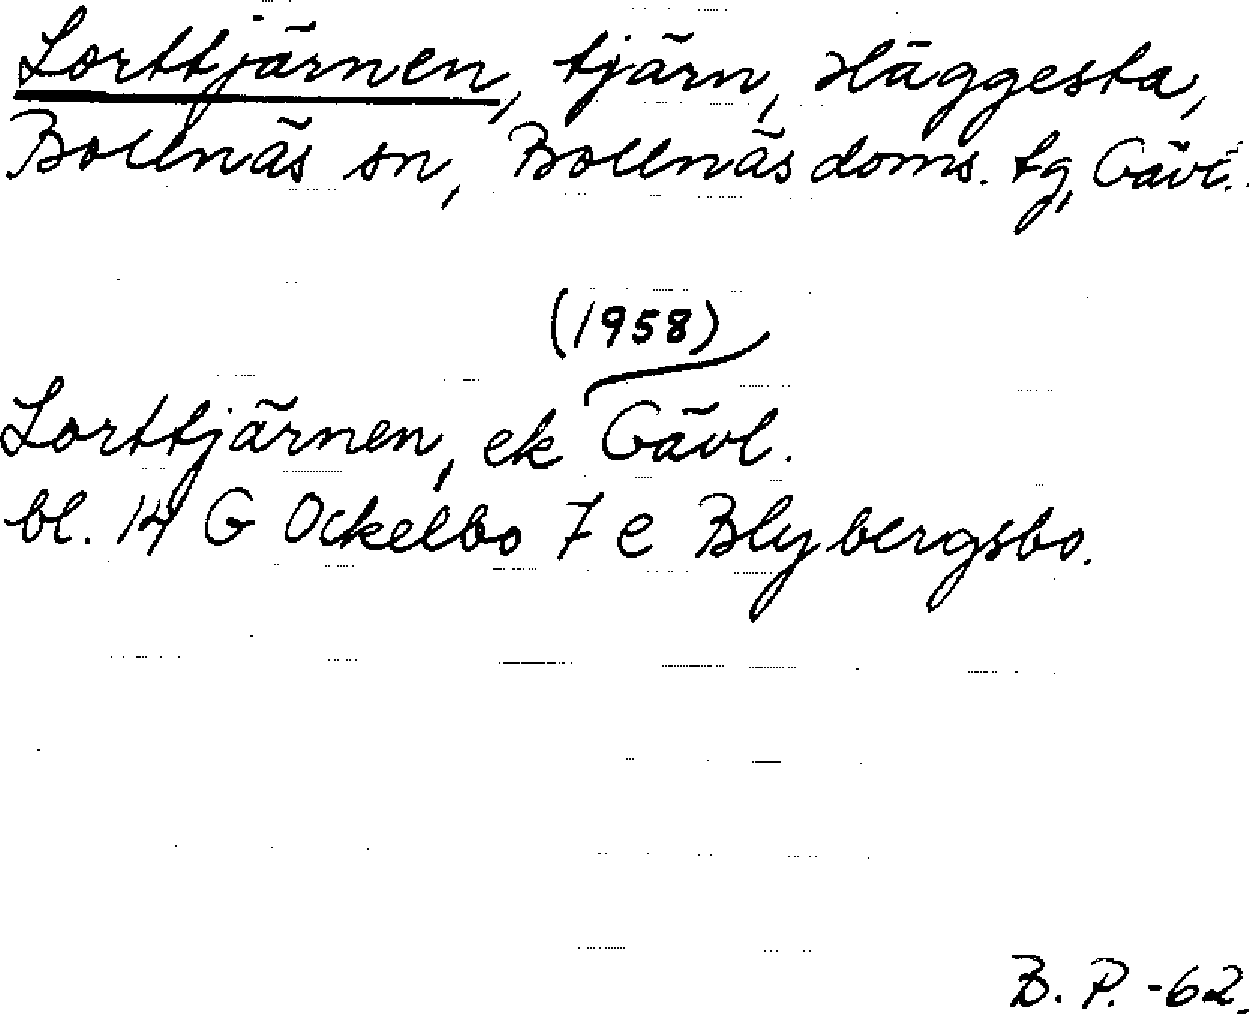 Lorttjärnen, tjärn, Häggesta,
Bollnäs sn, Bollnäs doms. tg, Gävl.
(1958)
Lorttjärnen, ek Gävl.
bl. 14 G Ockelbo 7 e Blybergsbo.
B. P. -62.